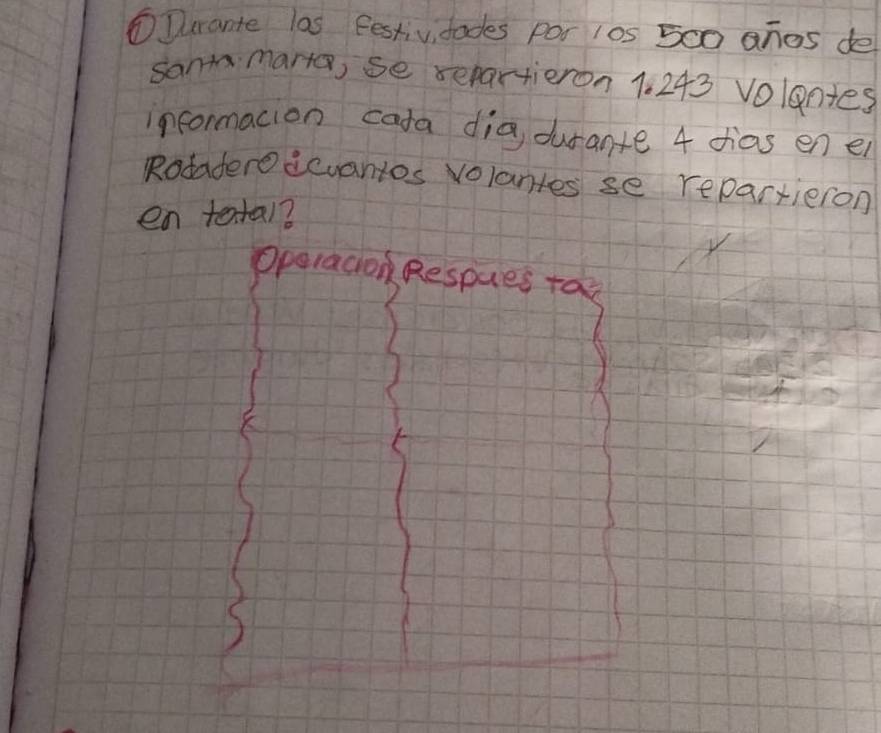 ① Durante las festividades por los 500 años de
santa marta, se repartieron 1.243 volantes
informacion cada dia, durante 4 dias en el
Rodadero ¿cuantos volantes se repartieron
en total?
Operacion Respuesta